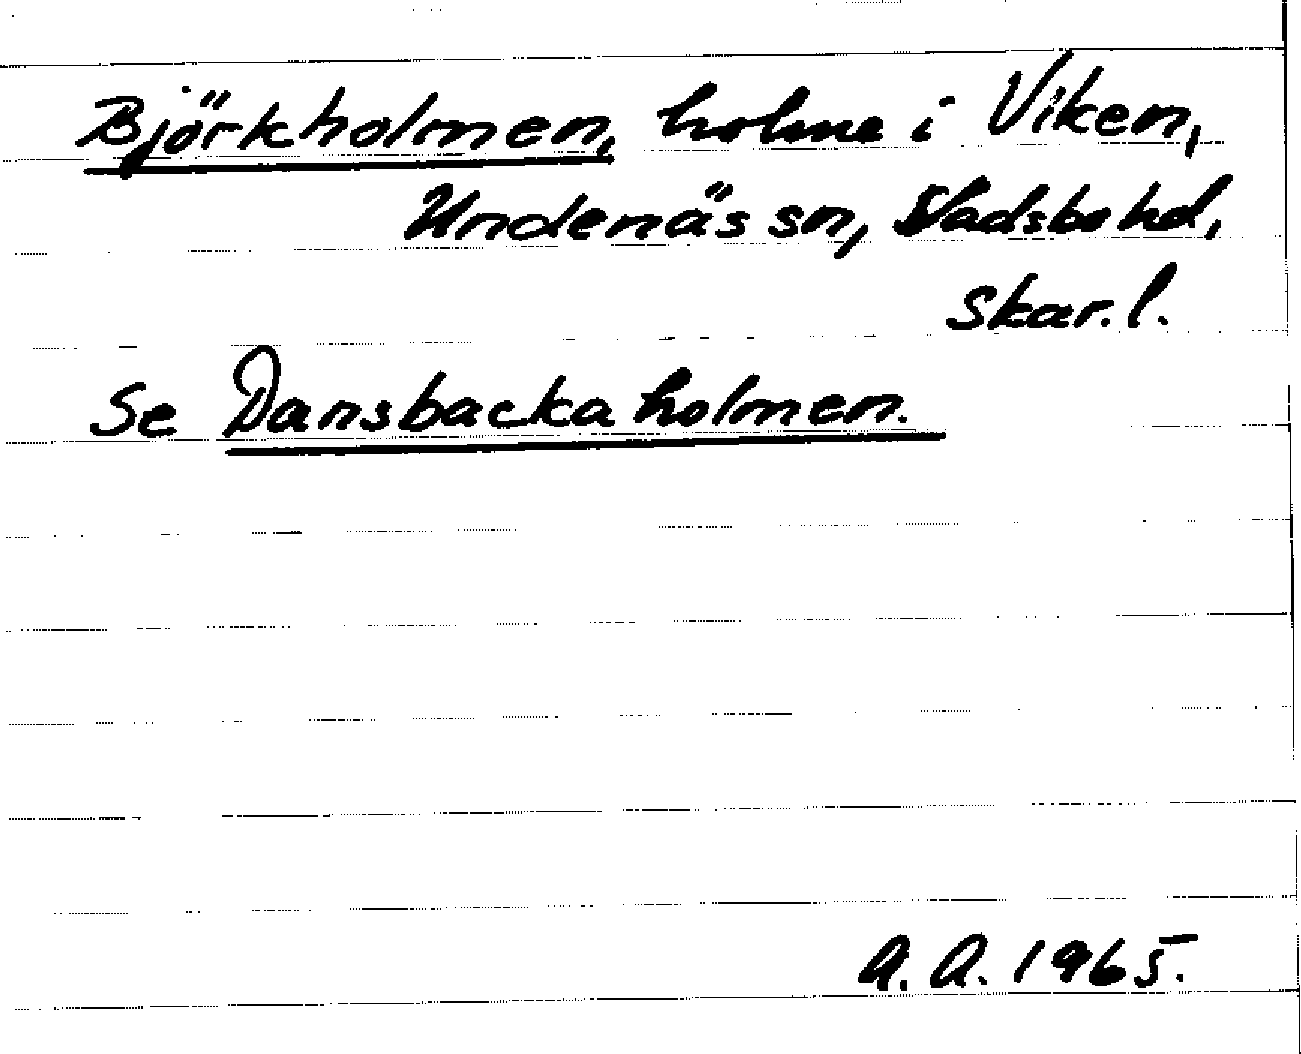 Björkholmen, holme i Viken,
Undenäs sn, Vadsbo hd,
Skar. l.
Se Dansbackaholmen.
A. A. 1965.